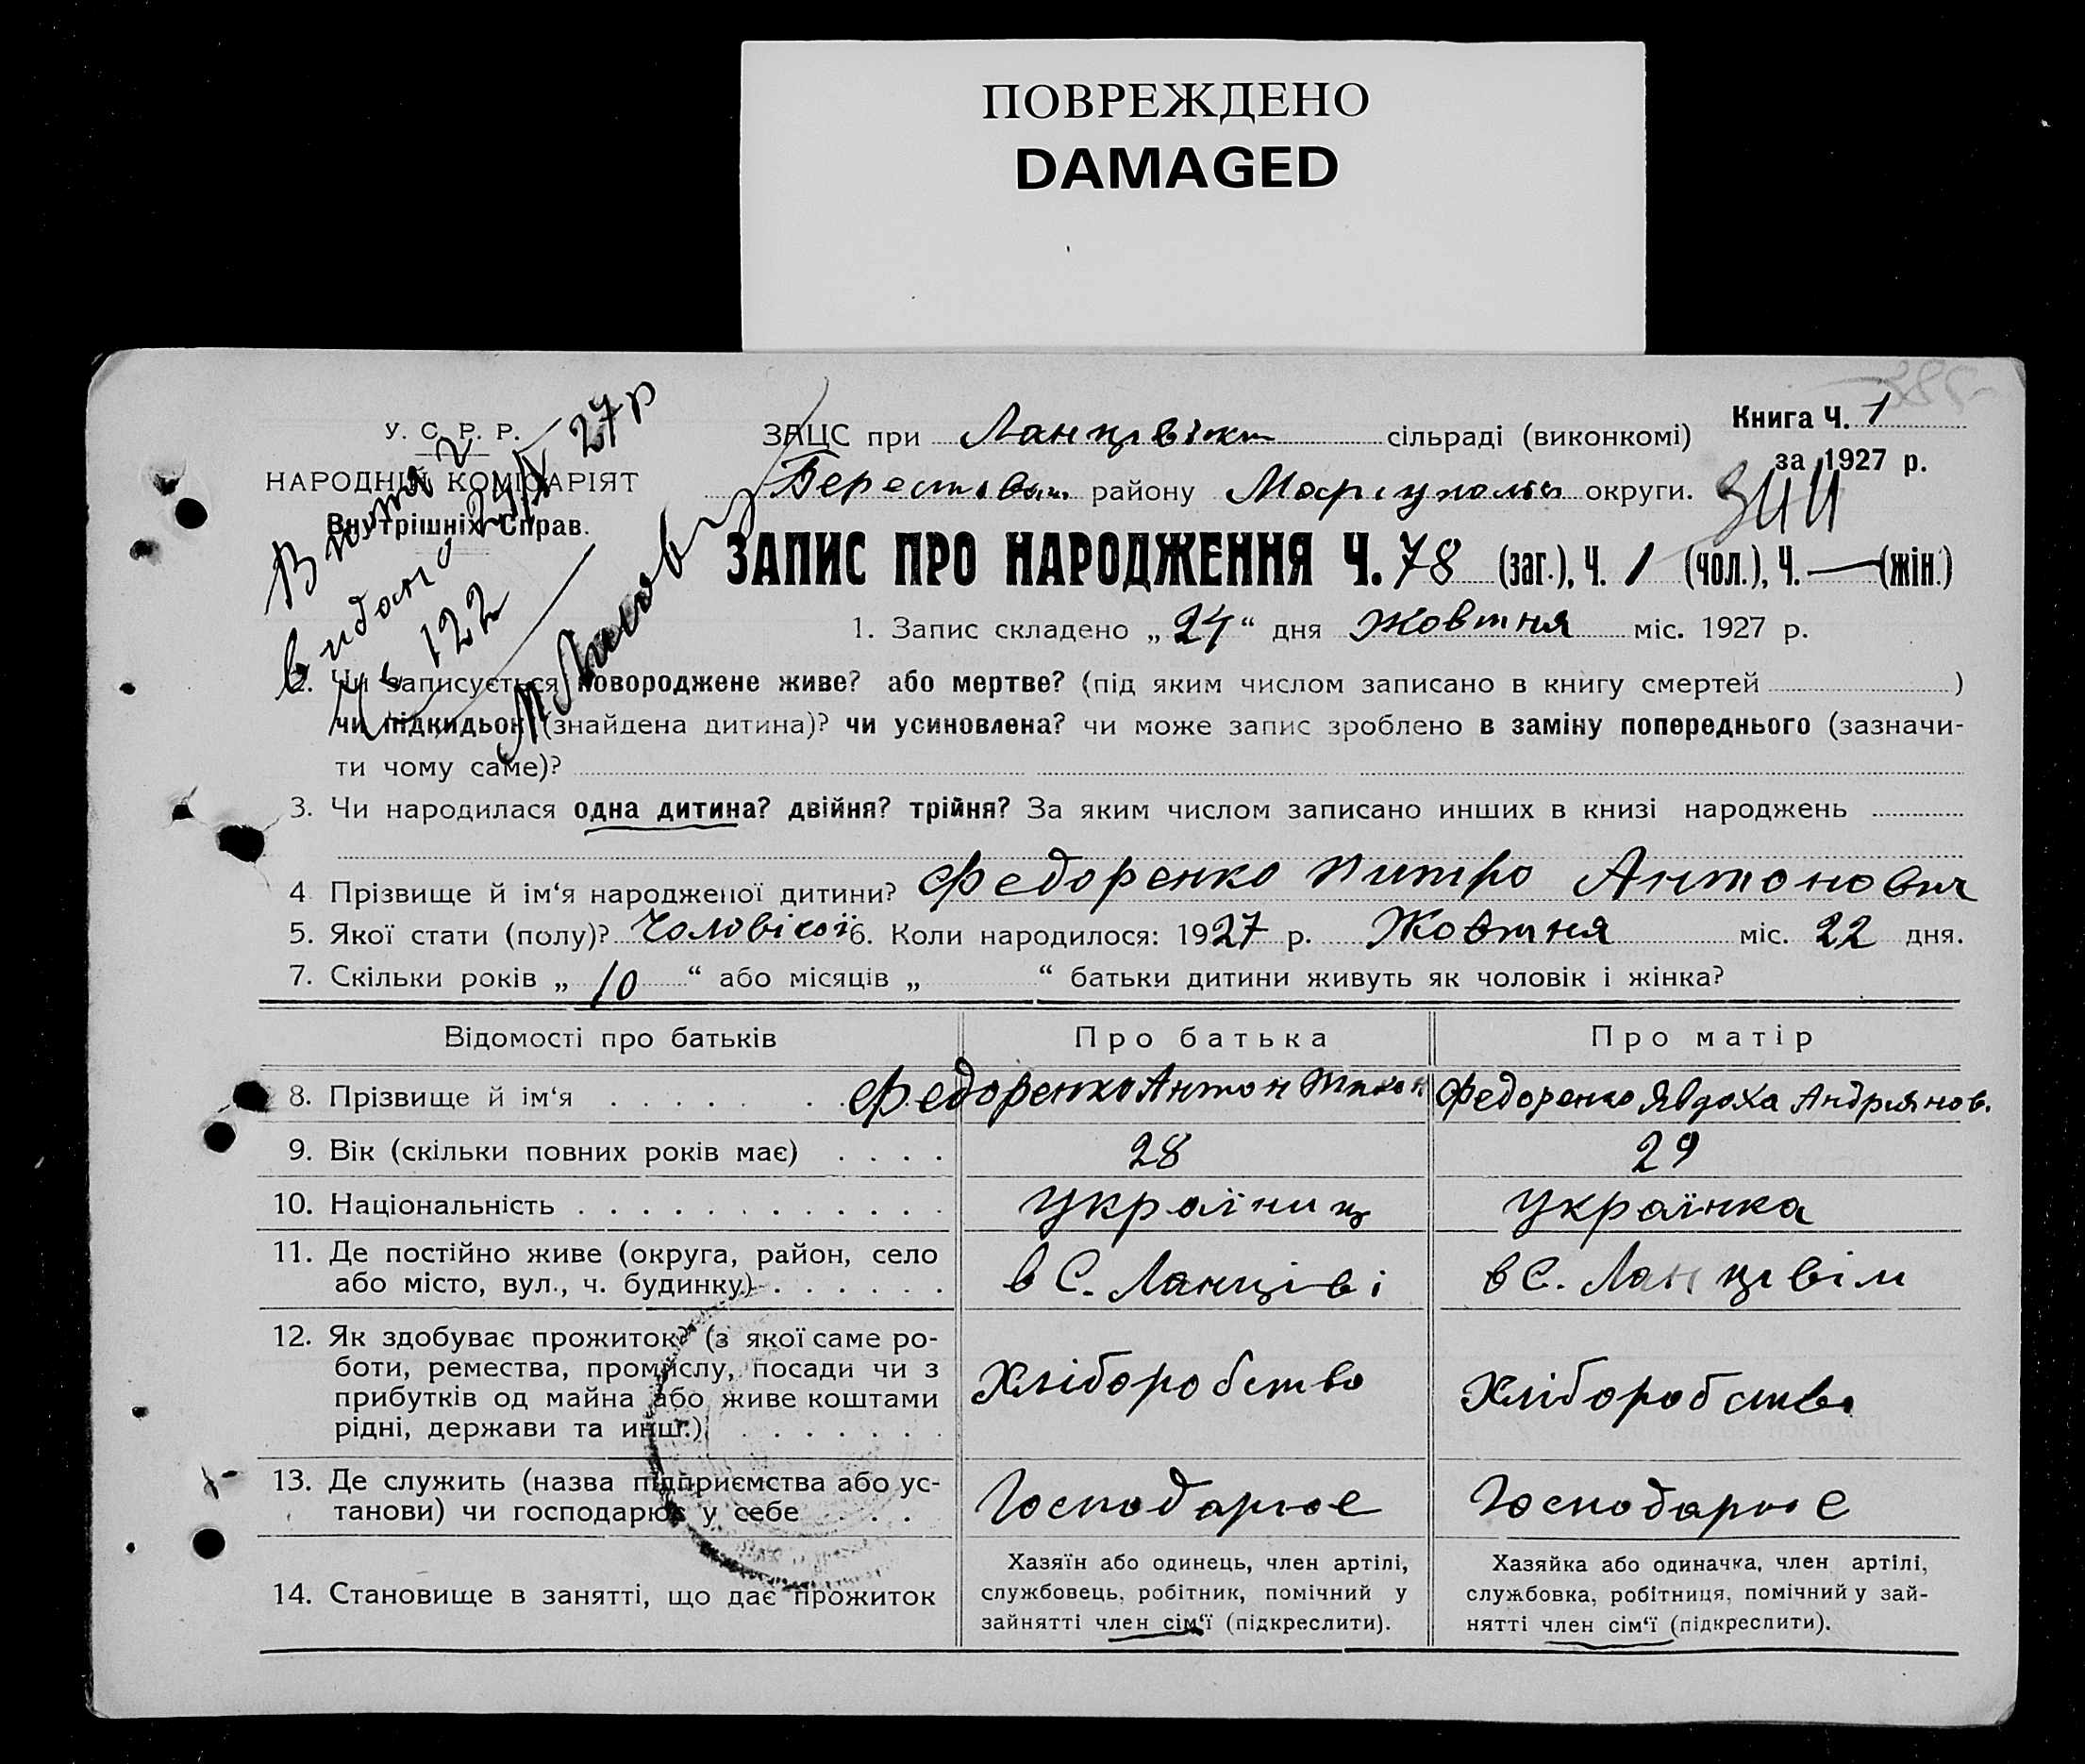 ПОВРЕЖДЕНО
DAMAGED
У. С. Р. Р.
НАРОДНІЙ КОМІСАРІЯТ
Внутрішніх Справ.
27р
видані
№ 122
ЗАЦС при сільраді (виконкомі)
Книга Ч. 1
за 1927 р.
району округи.
ЗАПИС ПРО НАРОДЖЕННЯ Ч. 78 (заг.), Ч. 1 (чол.), Ч. — (жін.)
1. Запис складено „ 24 “ дня Жовтня міс. 1927 р.
2. Чи записується новороджене живе? або мертве? (під яким числом записано в книгу смертей )
чи підкидьок (знайдена дитина)? чи усиновлена? чи може запис зроблено в заміну попереднього (зазначи-
ти чому саме)?
3. Чи народилася одна дитина? двійня? трійня? За яким числом записано инших в книзі народжень
4. Прізвище й ім‘я народженої дитини? Федоренко Антонович
5. Якої стати (полу)? Чоловікої 6. Коли народилося: 1927 р. Жовтня міс. 22 дня.
7. Скільки років „ 10 “ або місяців „ “ батьки дитини живуть як чоловік і жінка?
Відомості про батьків Про батька Про матір
8. Прізвище й ім‘я Федоренко Антон Федоренко Явдоха Андріянов.
9. Вік (скільки повних років має) 28 29
10. Національність україниц українка
11. Де постійно живе (округа, район, село
або місто, вул., ч. будинку) в С. Ланціві в С. Ланцівім
12. Як здобуває прожиток? (з якої саме ро-
боти, ремества, промислу, посади чи з
прибутків од майна або живе коштами
рідні, держави та инш.) Хліборобство Хліборобство
13. Де служить (назва підприємства або ус-
танови) чи господарює у себе Господарює Господарює
14. Становище в занятті, що дає прожиток
Хазяїн або одинець, член артілі,
службовець, робітник, помічний у
зайнятті член сім‘ї (підкреслити).
Хазяйка або одиначка, член артілі,
службовка, робітниця, помічний у зай-
нятті член сім‘ї (підкреслити).